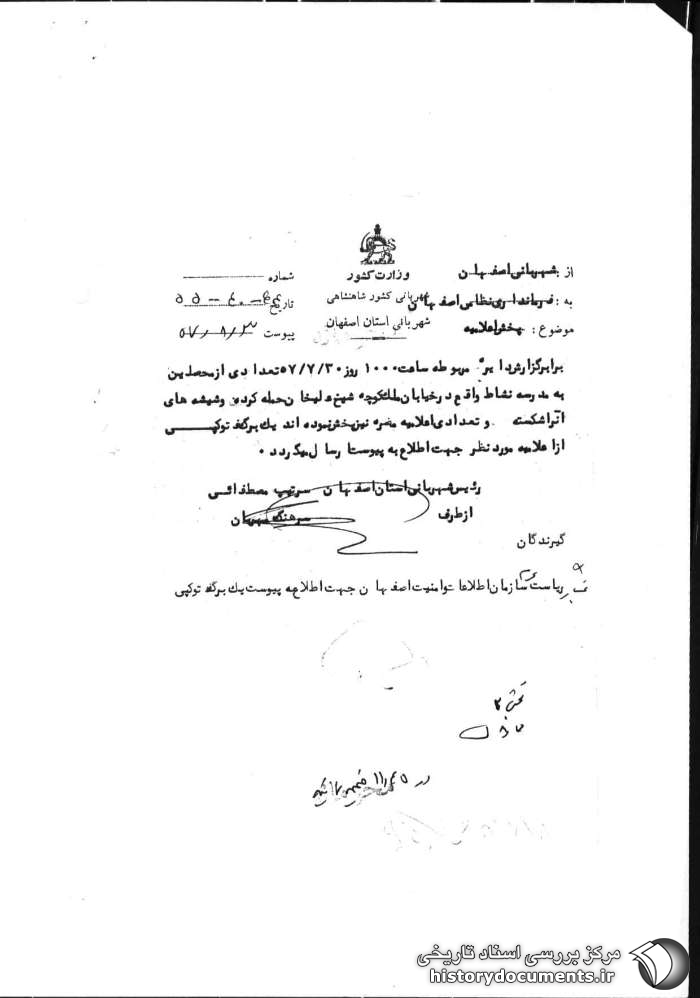 وزارت کشور
شهربانی کشور شاهنشاهی
شهربانی استان اصفهان
از: شهربانی اصفهان
به: فرمانداری نظامی اصفهان
موضوع: پخش اعلامیه
شماره
تاریخ
پیوست ۵۷/۸/۳
برابر گزارش دایره مربوطه ساعت ۱۰۰۰ روز ۵۷/۷/۳۰ تعدادی از محصلین
به مدرسه نشاط واقع در خیابان ملک کوچه شیخ علیخان حمله کرده و شیشه های
آنرا شکسته و تعدادی اعلامیه مضره نیز پخش نموده اند یک برگ فتوکپی
از اعلامیه مورد نظر جهت اطلاع به پیوست ارسال میگردد.
رئیس شهربانی استان اصفهان سرتیپ مصطفائی
از طرف سرهنگ
گیرندگان
ریاست سازمان اطلاعات و امنیت اصفهان جهت اطلاع به پیوست یک برگ فتوکپی
مرکز بررسی اسناد تاریخی
historydocuments.ir